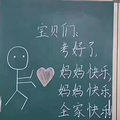 宝贝们：
考好了，
妈妈快乐，
妈妈快乐，
全家快乐！